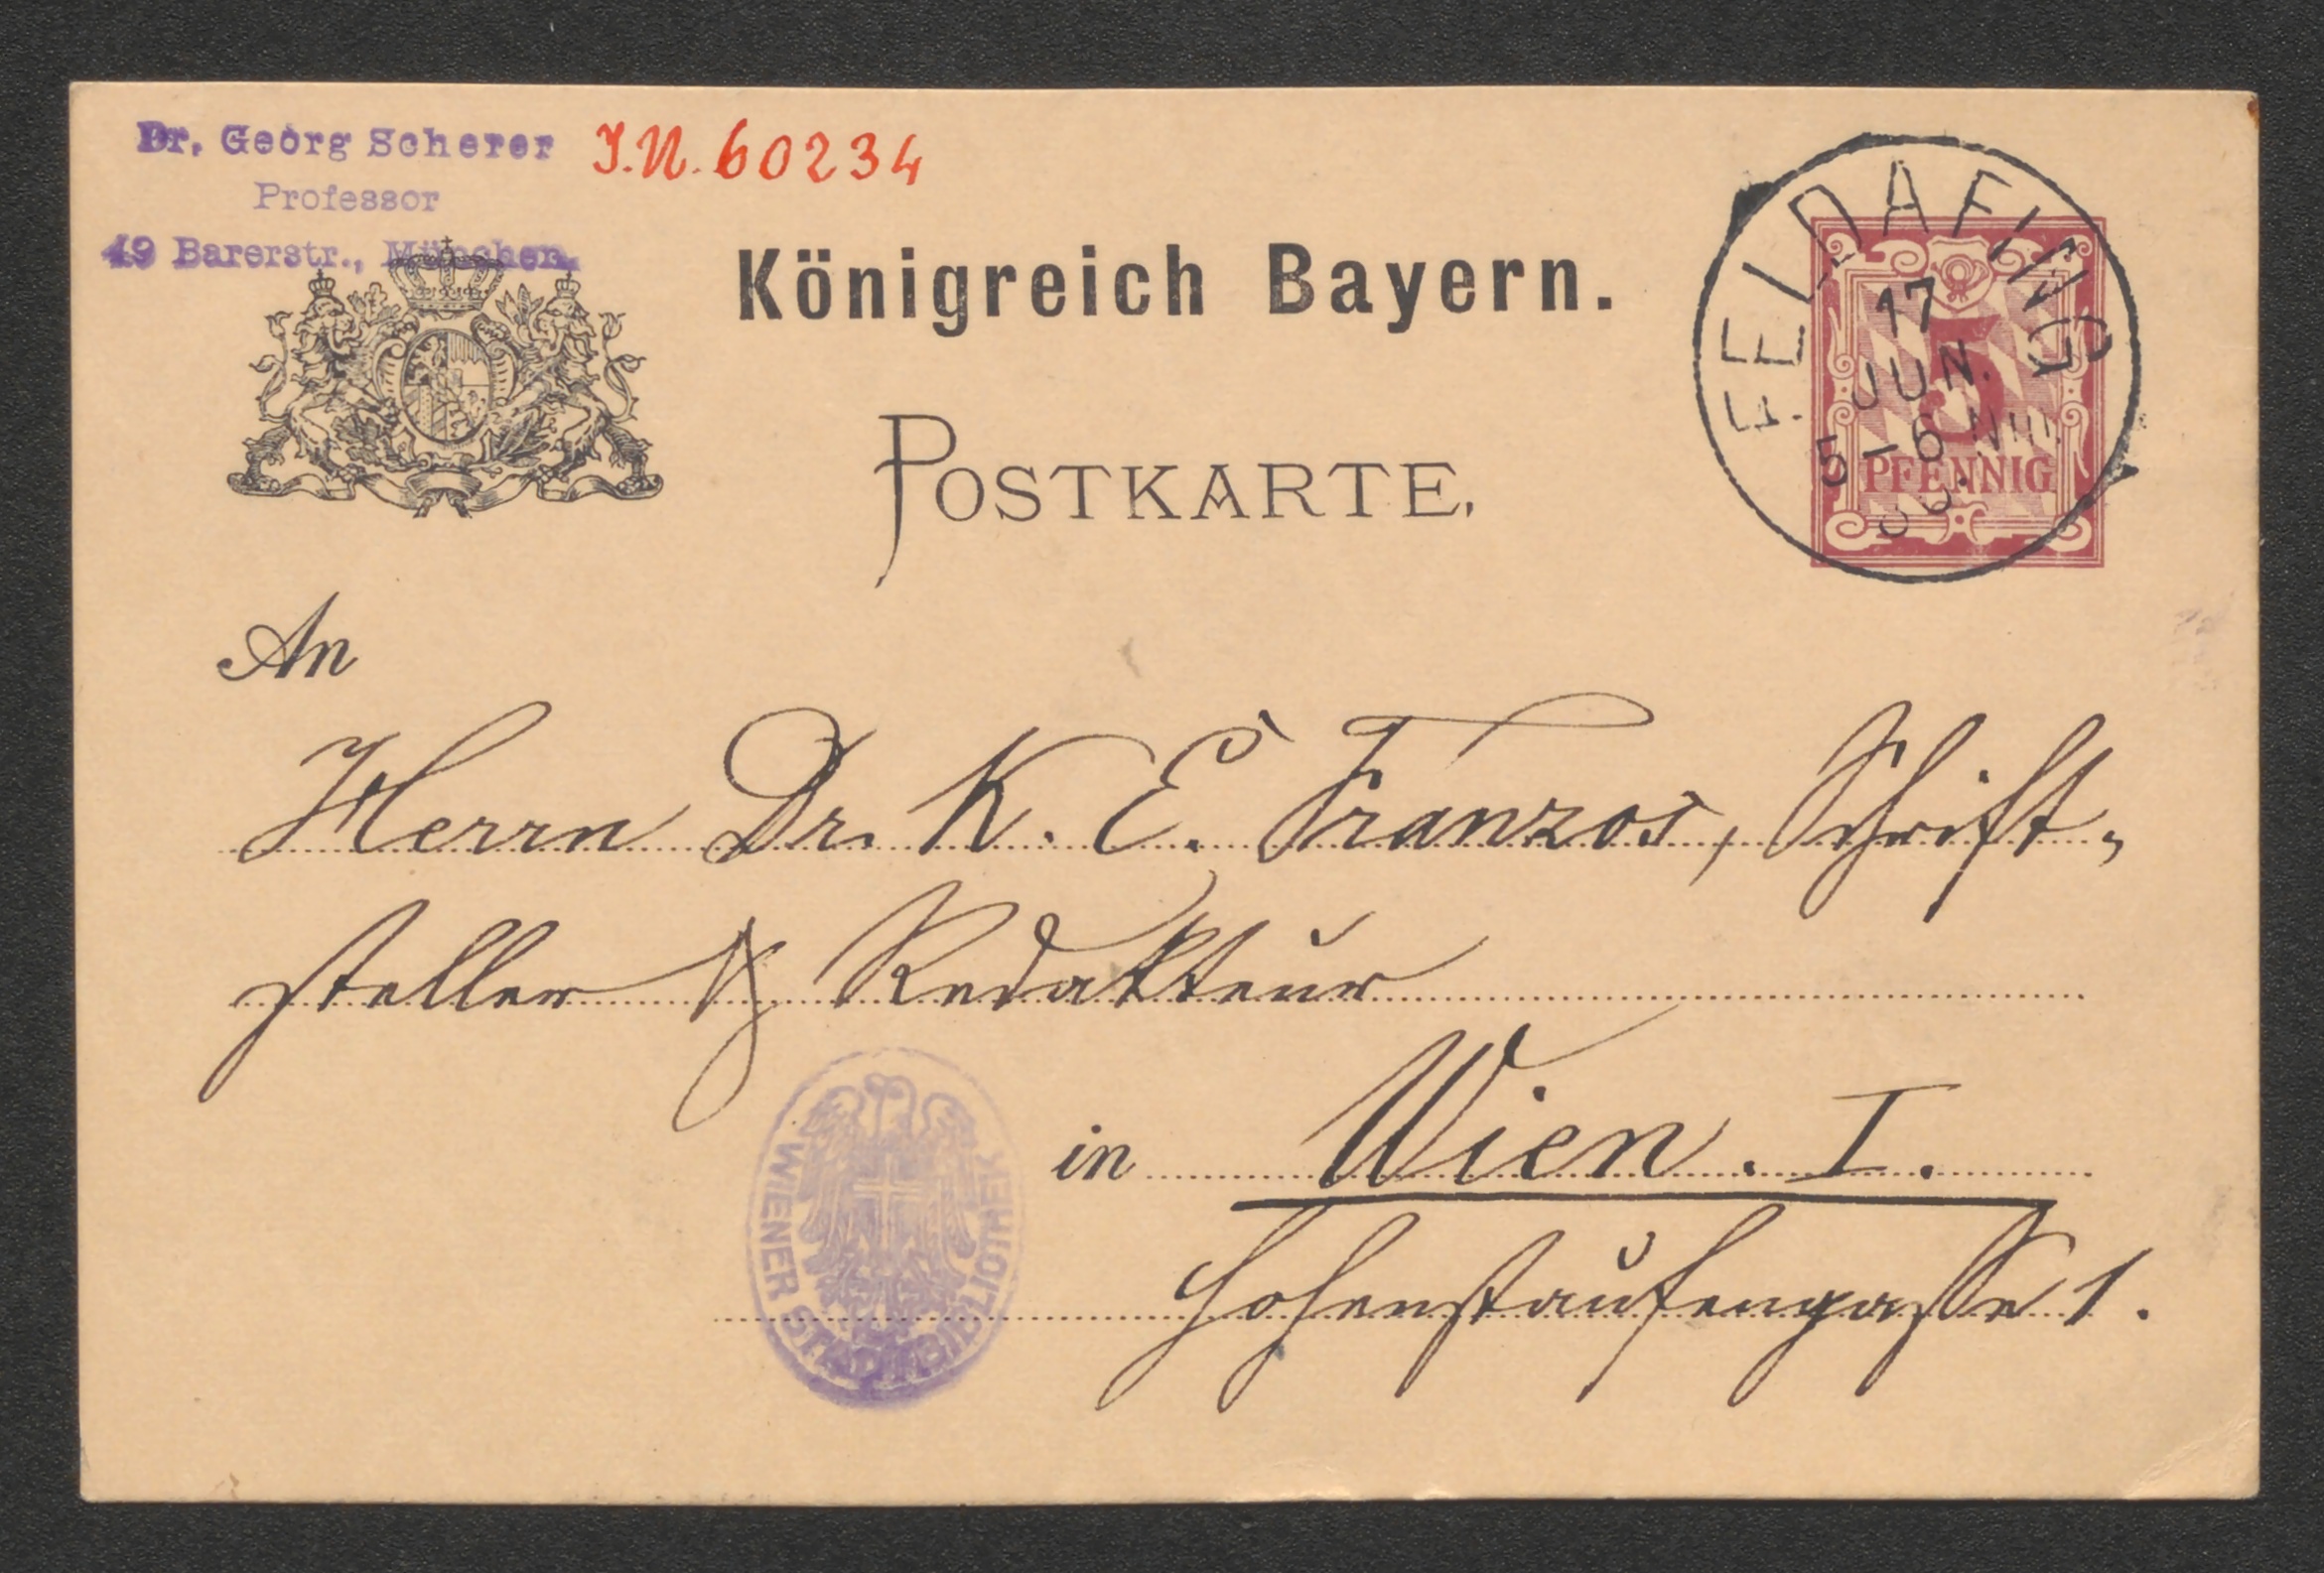 Dr. Georg Scherer
Professor
49 Barerstr., München.
J.N. 60234
Königreich Bayern.
POSTKARTE.
FELDAFING
17
JUN.
5-6 Nm.
5
PFENNIG
An
Herrn Dr. K. E. Franzos, Schrift-
steller & Redakteur
in Wien. I.
Hohenstaufengasse 1.
WIENER STADTBIBLIOTHEK